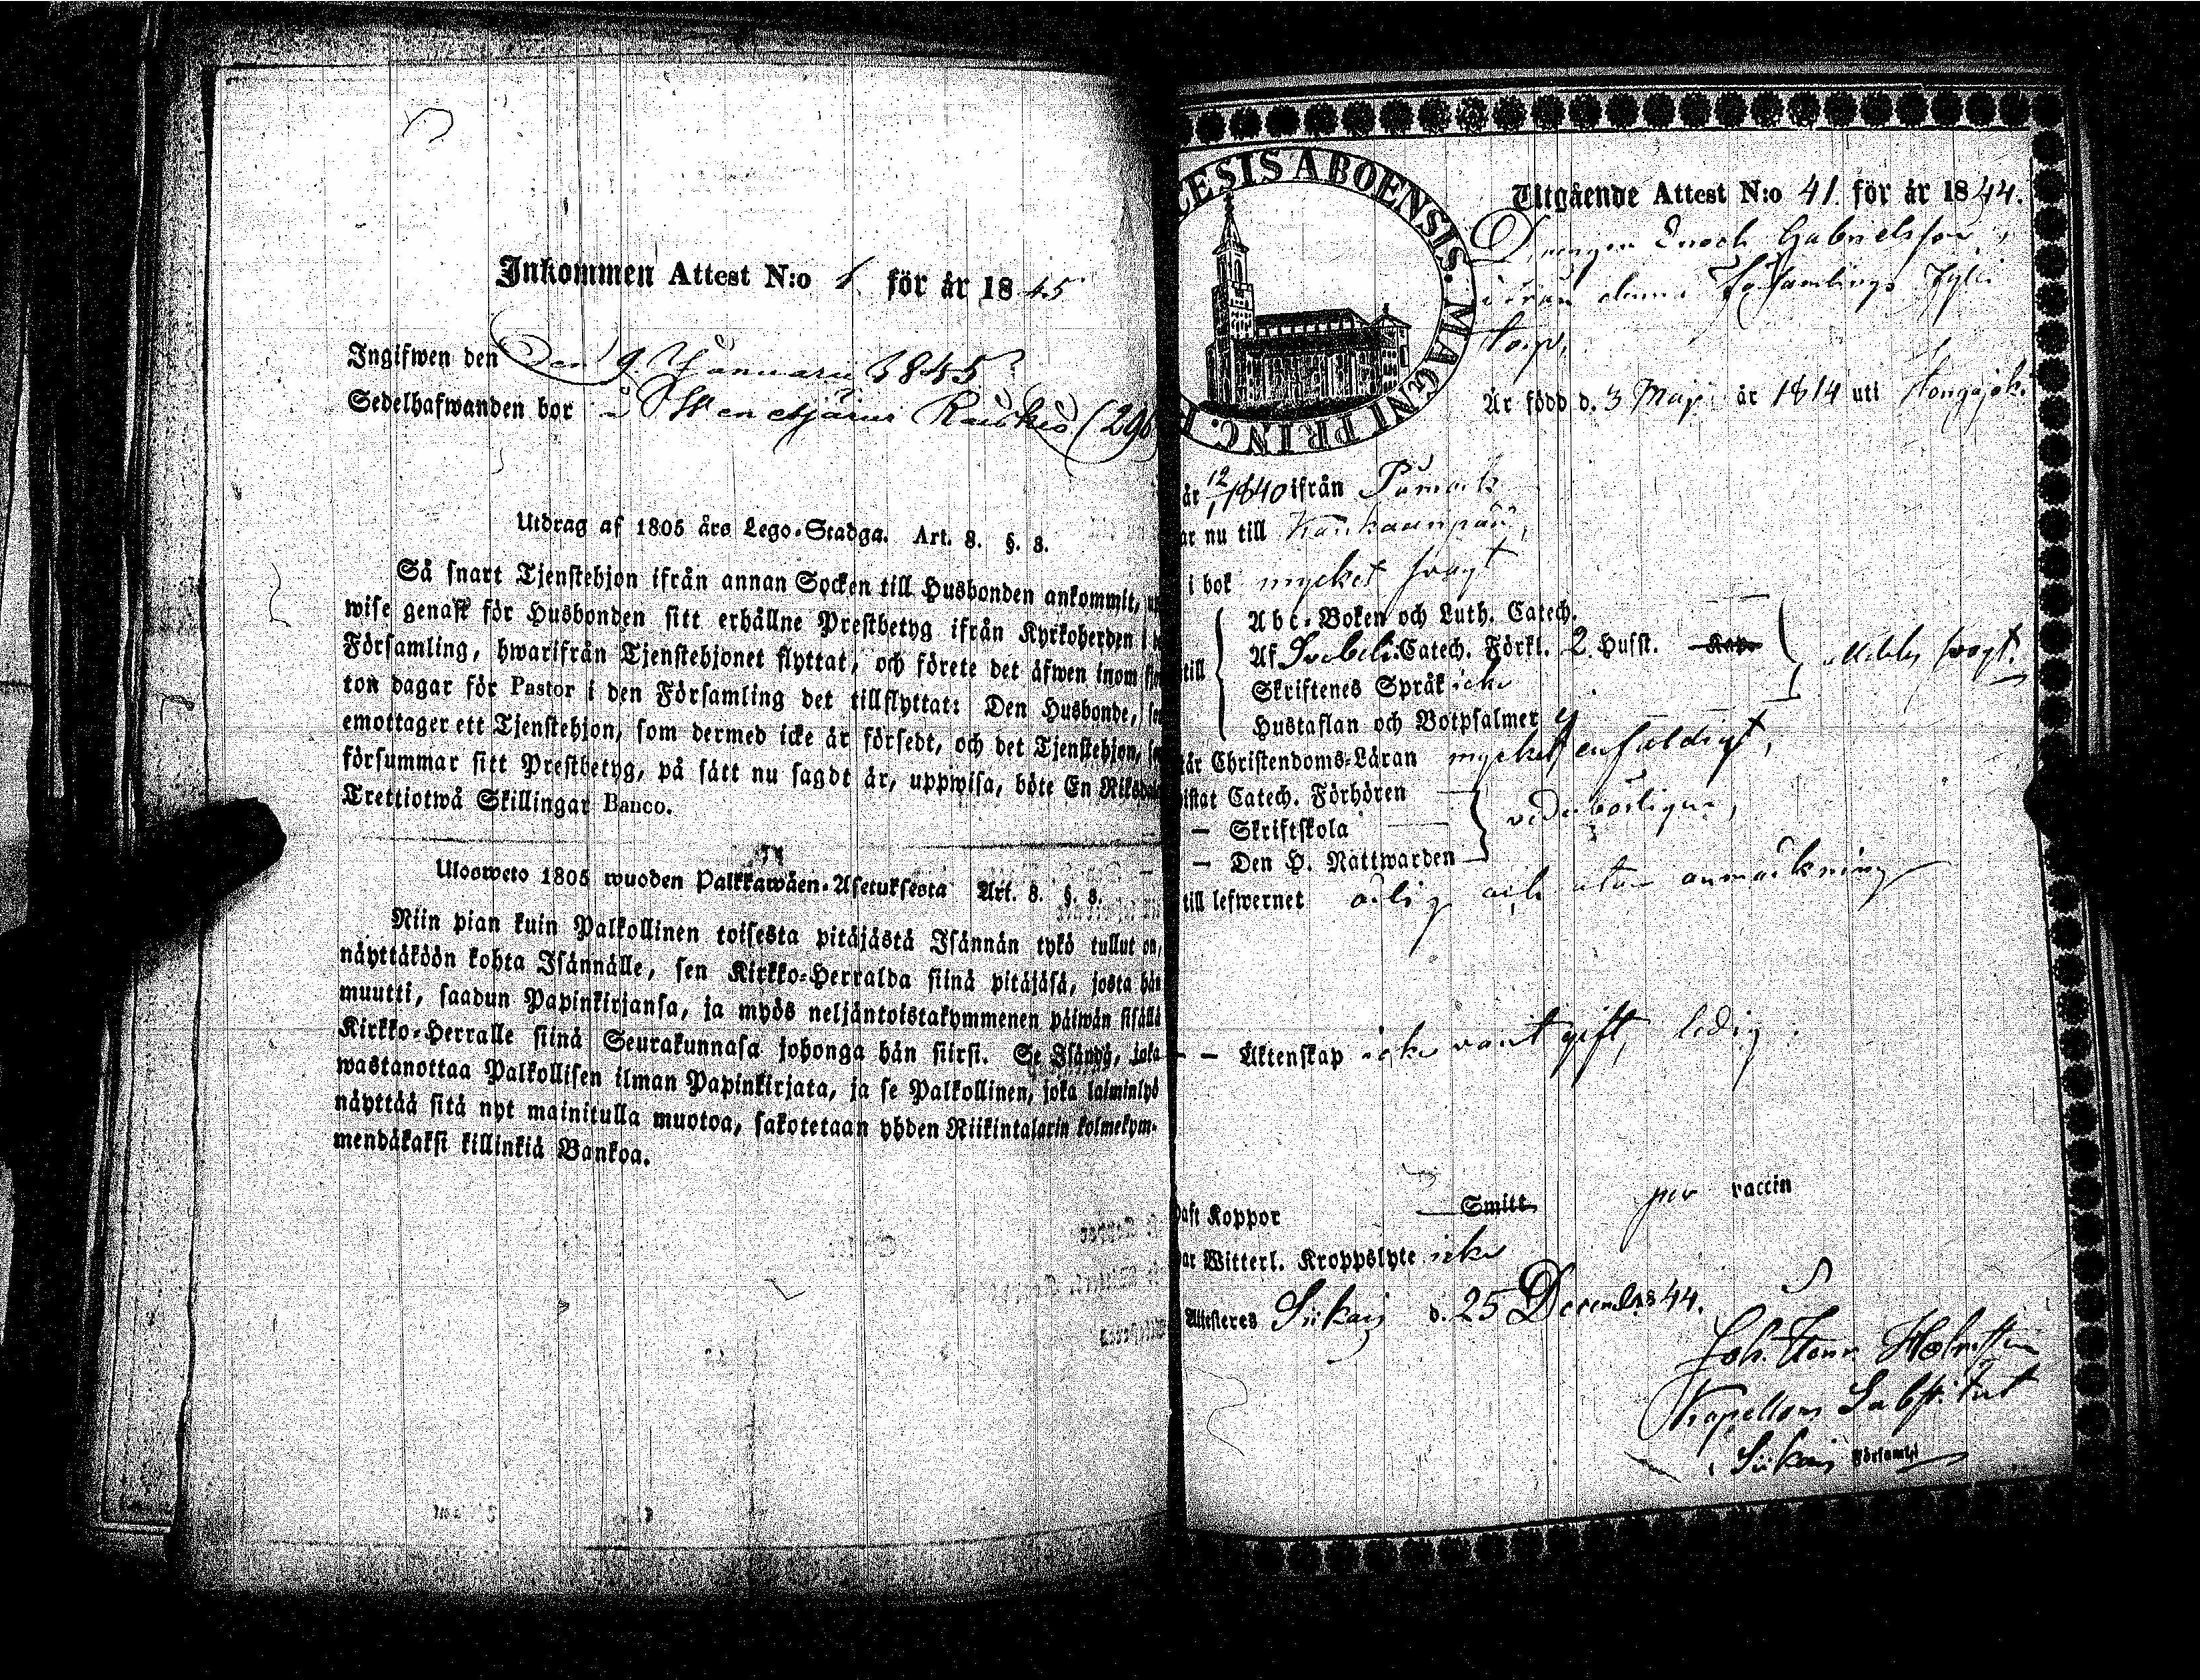 Inkommen Attest N:o för år 1845
Ingifwen den Den 9. Januarii 1845
Sedelhafwanden bor
Utdrag af 1805 års Lego-Stadga. Art. 8. §. 8.
Så snart Tjenstehjon ifrån annan Socken till Husbonden ankommit,
wise genast för Husbonden sitt erhållne Prestbetyg ifrån Kyrkoherden i
Församling, hwarifrån Tjenstehjonet flyttat, och förete det äfwen inom
ton dagar för Pastor i den Församling det tillflyttat: Den Husbonde,
emottager ett Tjenstehjon, som dermed icke är försedt, och det Tjenstehjon,
försummar sitt Prestbetyg, på sätt nu sagdt är, uppwisa, böte En
Trettiotwå Skillingar Banco.
Ulosweto 1805 wuoden Palkkawäen-Asetuksesta Art. 8. §. 8.
Niin pian kuin Palkollinen toisesta pitäjästä Isännän tykö tullut on,
näyttäköön kohta Isännälle, sen Kirkko-Herralda siinä pitäjäsä, josta hän
muutti, saadun Papinkirjansa, ja myös neljäntoistakymmenen päiwän sisällä
Kirkko-Herralle siinä Seurakunnasa johonga hän siirsi. Se Isändä, joka
wastanottaa Palkollisen ilman Papinkirjata, ja se Palkollinen, joka laiminlyö
näyttää sitä nyt mainitulla muotoa, sakotetaan yhden Riikintalarin kolmekym-
mendäkaksi killinkiä Bankoa.
ESIS ABOENSIS. MAGNI PRINC. F
Utgående Attest N:o 41. för år 1844.
Drengen Enoch Gabrielsson,
ifrån denna Församlings
torp,
Är född d. 3 Maji år 1814 uti
år 12/1 1840 ifrån Påmark
ar nu till Kankaanpää,
i bok mycket swagt
Abc-Boken och Luth. Catech.
till Af Svebelii Catech. Förkl. 2. Husst. swagt.
Skriftenes Språk icke
Hustaflan och Botpsalmer
är Christendoms-Läran mycket enfaldigt,
istat Catech. Förhören
— Skriftskola vederbörligen,
— Den H. Nattwarden
till lefwernet ärlig och utan anmärkning
— — Äktenskap icke varit gift, ledig.
haft Koppor Smitt per vaccin
ar Witterl. Kroppslyte icke
Attesteres Siikais d. 25 December 1844.
Joh. Henr. Holmsten
Kapellans Substitut
i Siikais Församl